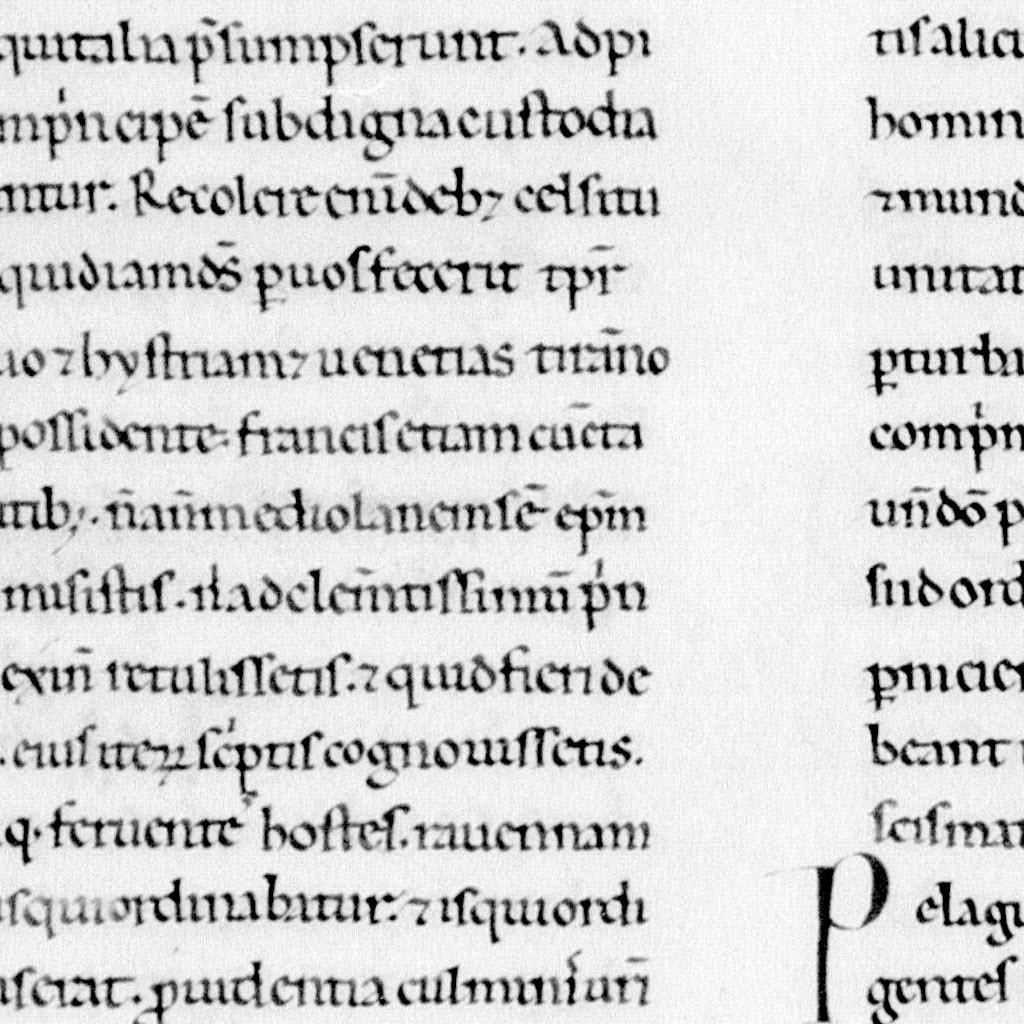 qui talia p̄sumpserunt. Ad pi
m pⁱncipē sub digna custodia
ntur. Recolere eni̅ debꝫ celsitu
quid iam dn̅s ꝑ uos fecerit tp̅r
uo ⁊ hystriam ⁊ uenetias tira̅no
possidente. francis etiam cūcta
tibꝫ. n̄ am̄ mediolanensē ep̅m
misistis. nⁱ ad clem̄tissimū pⁱn
exin̄ retulissetis. ⁊ quid fieri de
. eius iteꝝ scⁱptis cognouissetis.
q. feruente hostes. rauennam
is qui ordinabatur. ⁊ is qui ordi
serat. ꝓuidentia culminⁱs urī
tis alicu
homin
⁊ mund
unitat
ꝑturba
compⁱm
un̄ dō p
sud ord
ꝑnicie
beant
scisma
Pelagi
gentes